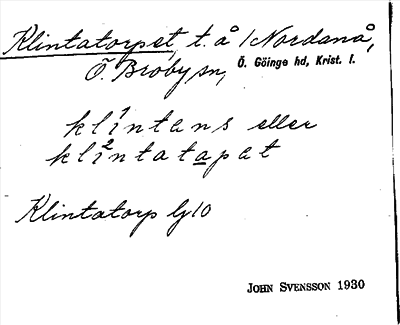 Klintatorpet, t. å /Nordanå,
Ö. Broby sn, Ö. Göinge hd, Krist. l.
kli1ntens eller
kli2ntatapet
Klintatorp Gj10
JOHN SVENSSON 1930